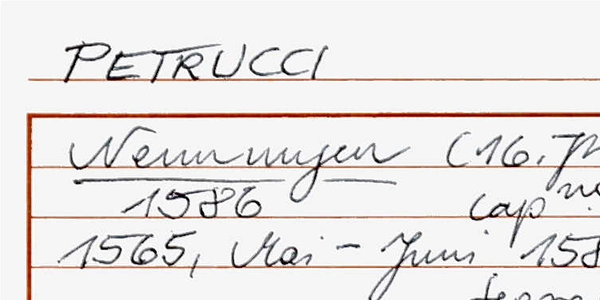 PETRUCCI
Nennungen (16. J
1586 cap
1565, Mai - Juni 158